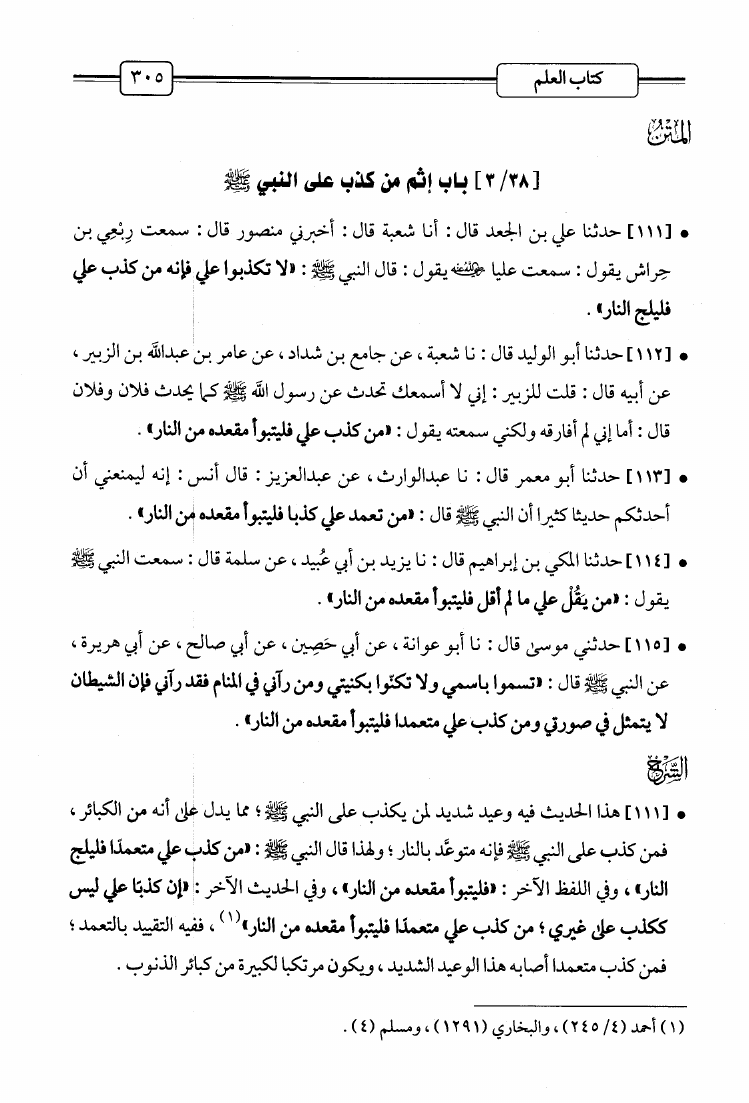 كتاب العلم
٣٠٥
المتن
[٣/٣٨] باب إثم من كذب على النبي ﷺ
• [١١١] حدثنا علي بن الجعد قال : أنا شعبة قال : أخبرني منصور قال : سمعت رِبْعِي بن
حِراش يقول : سمعت عليا رضي الله عنه يقول : قال النبي ﷺ : «لا تكذبوا علي فإنه من كذب علي
فليلج النار» .
• [١١٢] حدثنا أبو الوليد قال : نا شعبة ، عن جامع بن شداد ، عن عامر بن عبدالله بن الزبير ،
عن أبيه قال : قلت للزبير : إني لا أسمعك تحدث عن رسول الله ﷺ كما يحدث فلان وفلان
قال : أما إني لم أفارقه ولكني سمعته يقول : «من كذب علي فليتبوأ مقعده من النار» .
• [١١٣] حدثنا أبو معمر قال : نا عبدالوارث ، عن عبدالعزيز : قال أنس : إنه ليمنعني أن
أحدثكم حديثا كثيرا أن النبي ﷺ قال : «من تعمد علي كذبا فليتبوأ مقعده من النار» .
• [١١٤] حدثنا المكي بن إبراهيم قال : نا يزيد بن أبي عُبيد ، عن سلمة قال : سمعت النبي ﷺ
يقول : «من يَقُلْ علي ما لم أقل فليتبوأ مقعده من النار» .
• [١١٥] حدثني موسى قال : نا أبو عوانة ، عن أبي حَصِين ، عن أبي صالح ، عن أبي هريرة ،
عن النبي ﷺ قال : «تسموا باسمي ولا تكنّوا بكنيتي ومن رآني في المنام فقد رآني فإن الشيطان
لا يتمثل في صورتي ومن كذب علي متعمدا فليتبوأ مقعده من النار» .
الشرح
• [١١١] هذا الحديث فيه وعيد شديد لمن يكذب على النبي ﷺ ؛ مما يدل على أنه من الكبائر ،
فمن كذب على النبي ﷺ فإنه متوعَّد بالنار ؛ ولهذا قال النبي ﷺ : «من كذب علي متعمدًا فليلج
النار» ، وفي اللفظ الآخر : «فليتبوأ مقعده من النار» ، وفي الحديث الآخر : «إن كذبًا علي ليس
ككذب على غيري ؛ من كذب علي متعمدًا فليتبوأ مقعده من النار»(١) ، ففيه التقييد بالتعمد ؛
فمن كذب متعمدا أصابه هذا الوعيد الشديد ، ويكون مرتكبا لكبيرة من كبائر الذنوب .
(١) أحمد (٤/ ٢٤٥) ، والبخاري (١٢٩١) ، ومسلم (٤) .